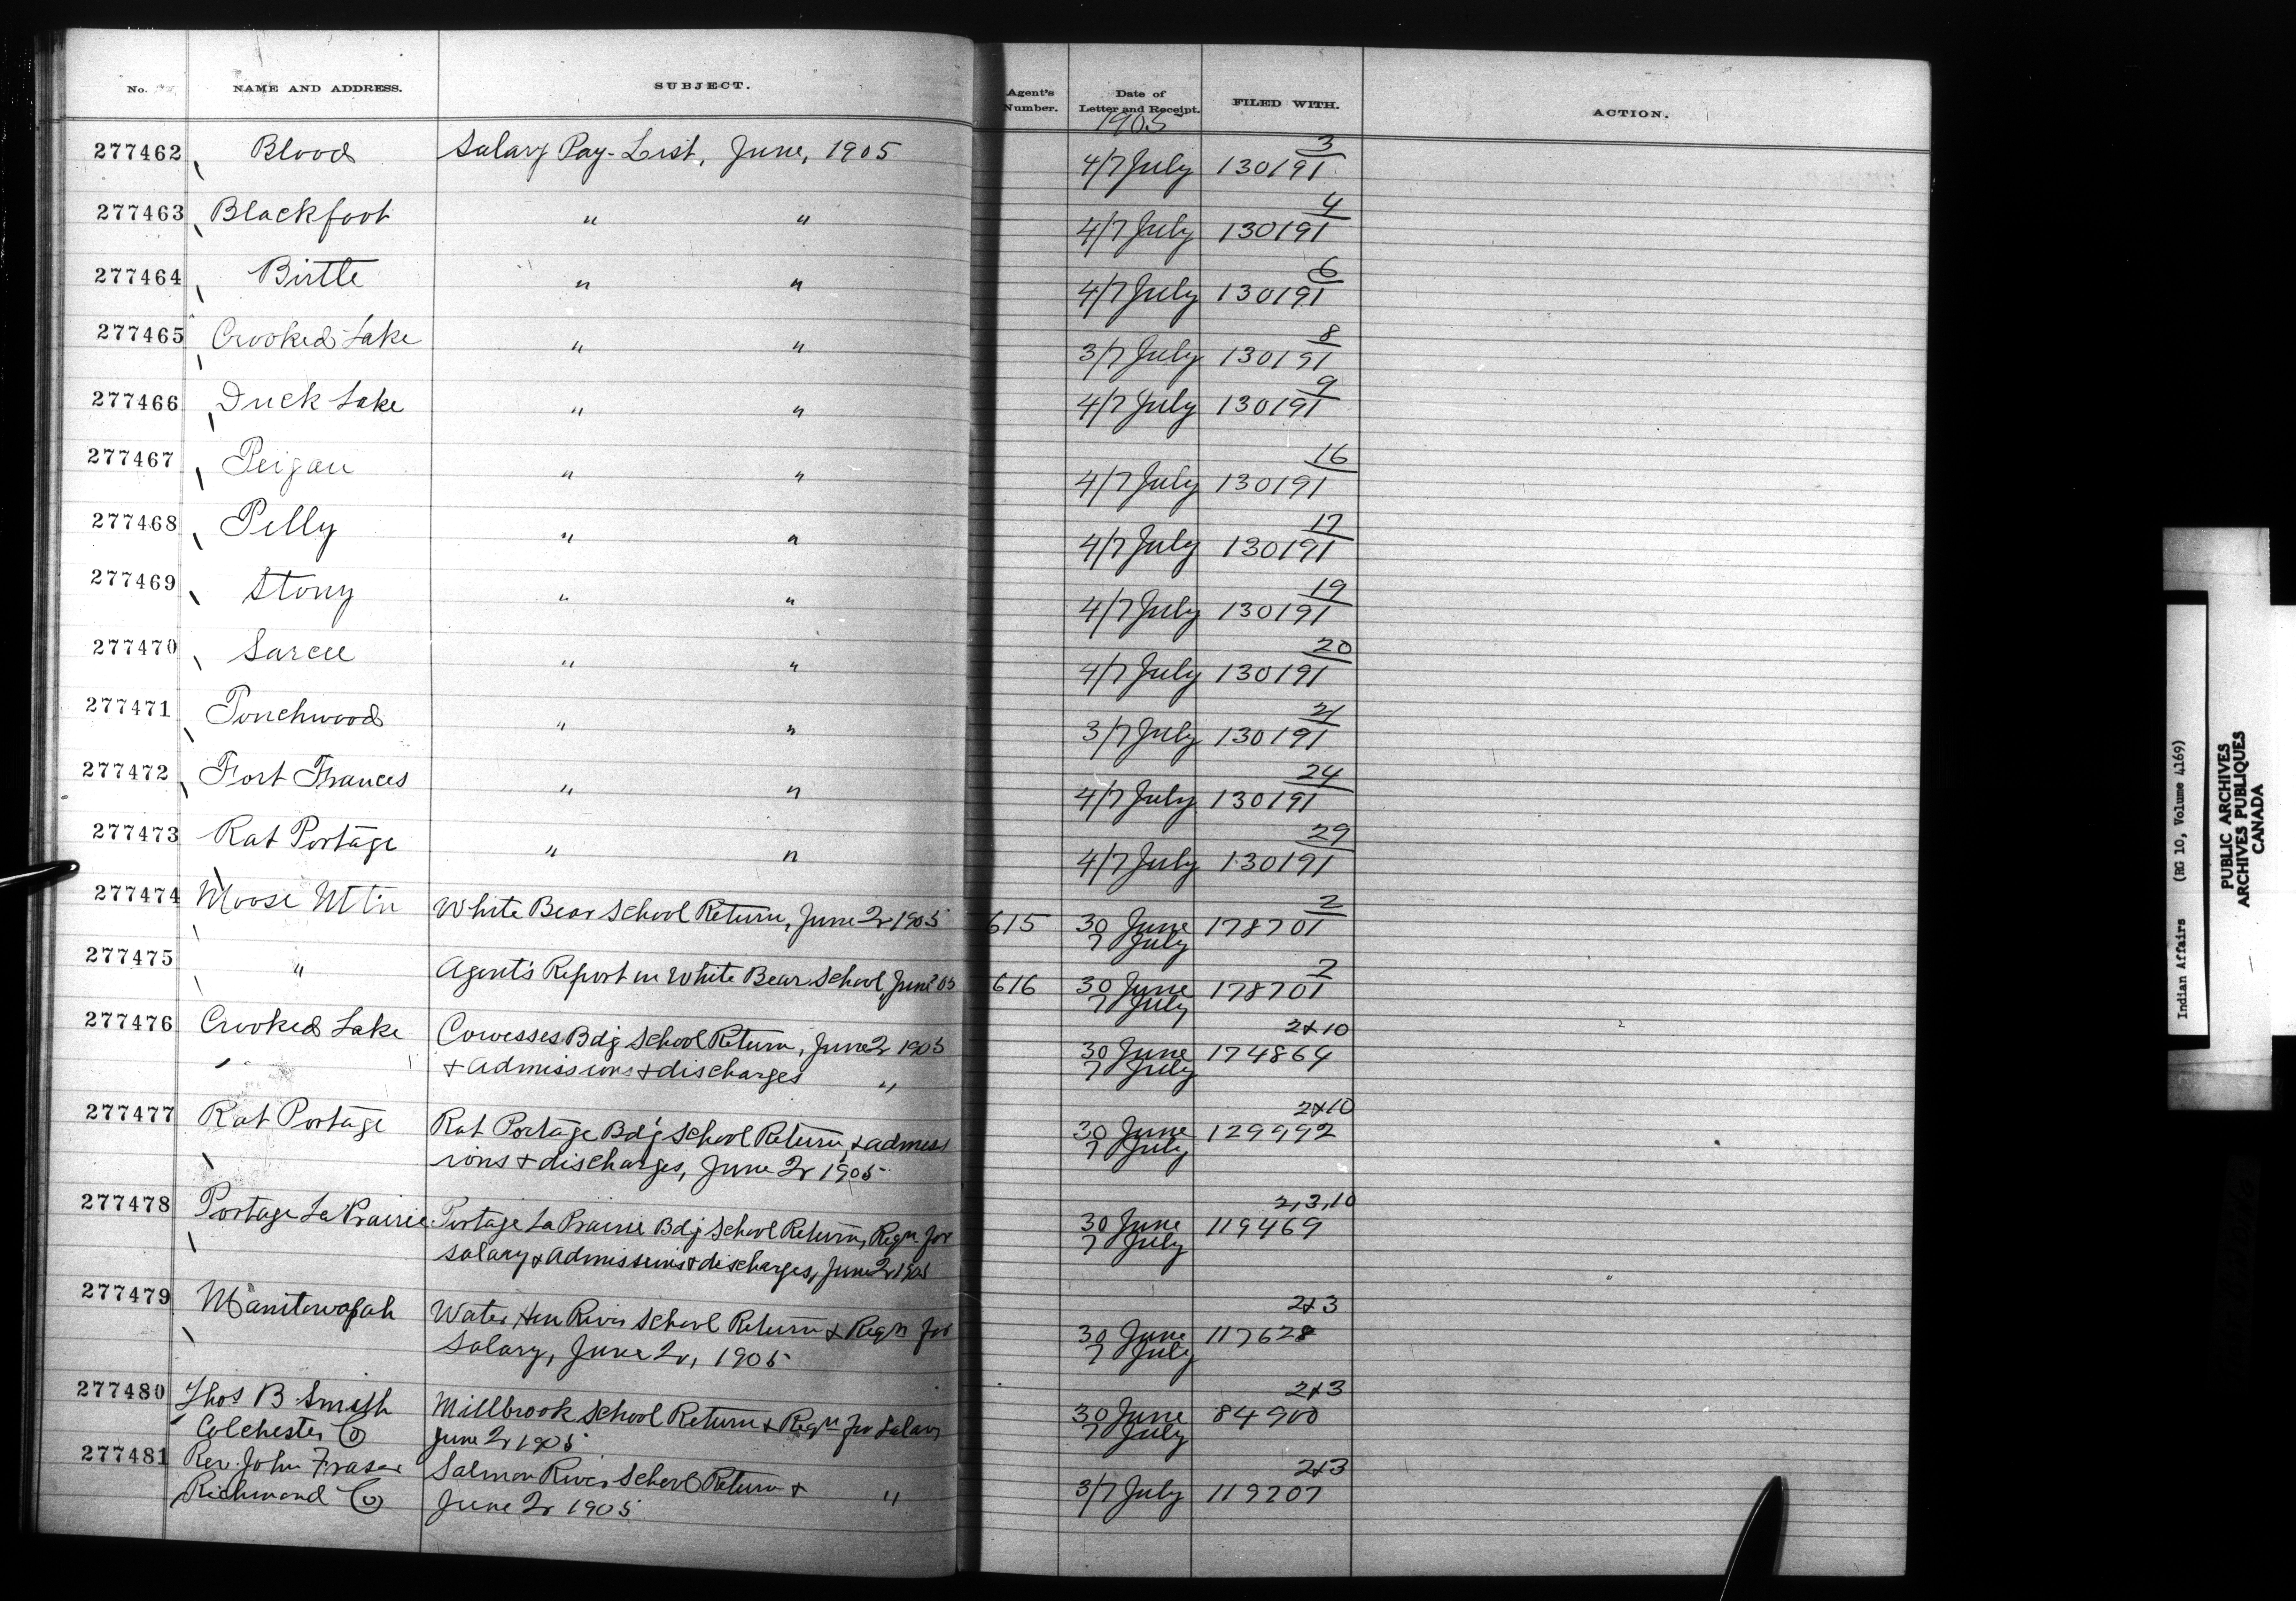 No. NAME AND ADDRESS. SUBJECT. Agent's Number. Date of Letter and Receipt. FILED WITH. ACTION.
1905
277462 Blood Salary Pay-List, June, 1905 4/7 July 3 130191
277463 Blackfoot " " 4/7 July 4 130191
277464 Birtle " " 4/7 July 6 130191
277465 Crooked Lake " " 3/7 July 8 130191
277466 Duck Lake " " 4/7 July 9 130191
277467 Peigan " " 4/7 July 16 130191
277468 Pelly " " 4/7 July 17 130191
277469 Stony " " 4/7 July 19 130191
277470 Sarcee " " 4/7 July 20 130191
277471 Touchwood " " 3/7 July 21 130191
277472 Fort Frances " " 4/7 July 24 130191
277473 Rat Portage " " 4/7 July 29 130191
277474 Moose Mtn White Bear School Return, June 2r 1905 615 30 June 2 178701
7 July
277475 " Agent's Report on White Bear School June 05 616 30 June 178701
7 July
277476 Crooked Lake Cowesses Bdg School Return, June 2r 1905 30 June 2 & 10 174864
" & Admissions & discharges " 7 July
277477 Rat Portage Rat Portage Bdg School Return, & admiss 30 June 2 & 10 129992
ions & discharges, June 2r 1905 7 July
277478 Portage La Prairie Portage La Prairie Bdg School Return, Reqn for 30 June 2, 3, 10 119469
salary & Admissions & discharges, June 2r 1905 7 July
277479 Manitowapah Water Hen River School Return & Reqn for 30 June 2 & 3 117628
Salary, June 2r, 1905 7 July
277480 Thos B. Smith Millbrook School Return & Reqn for Salary 30 June 2 & 3 84900
Colchester Co June 2r 1905 7 July
277481 Rev. John Fraser Salmon River School Return & " 3/7 July 2 & 3 119207
Richmond Co June 2r 1905
Indian Affairs (RG 10, Volume 4169)
PUBLIC ARCHIVES
ARCHIVES PUBLIQUES
CANADA